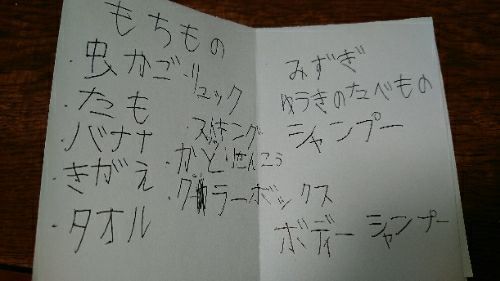 もちもの
・虫かご
・リュック
・たも
・バナナ
・かとりせんこう
・きがえ
・クーラーボックス
・タオル
みずぎ
ゆうきのたべもの
シャンプー
ボディーシャンプー